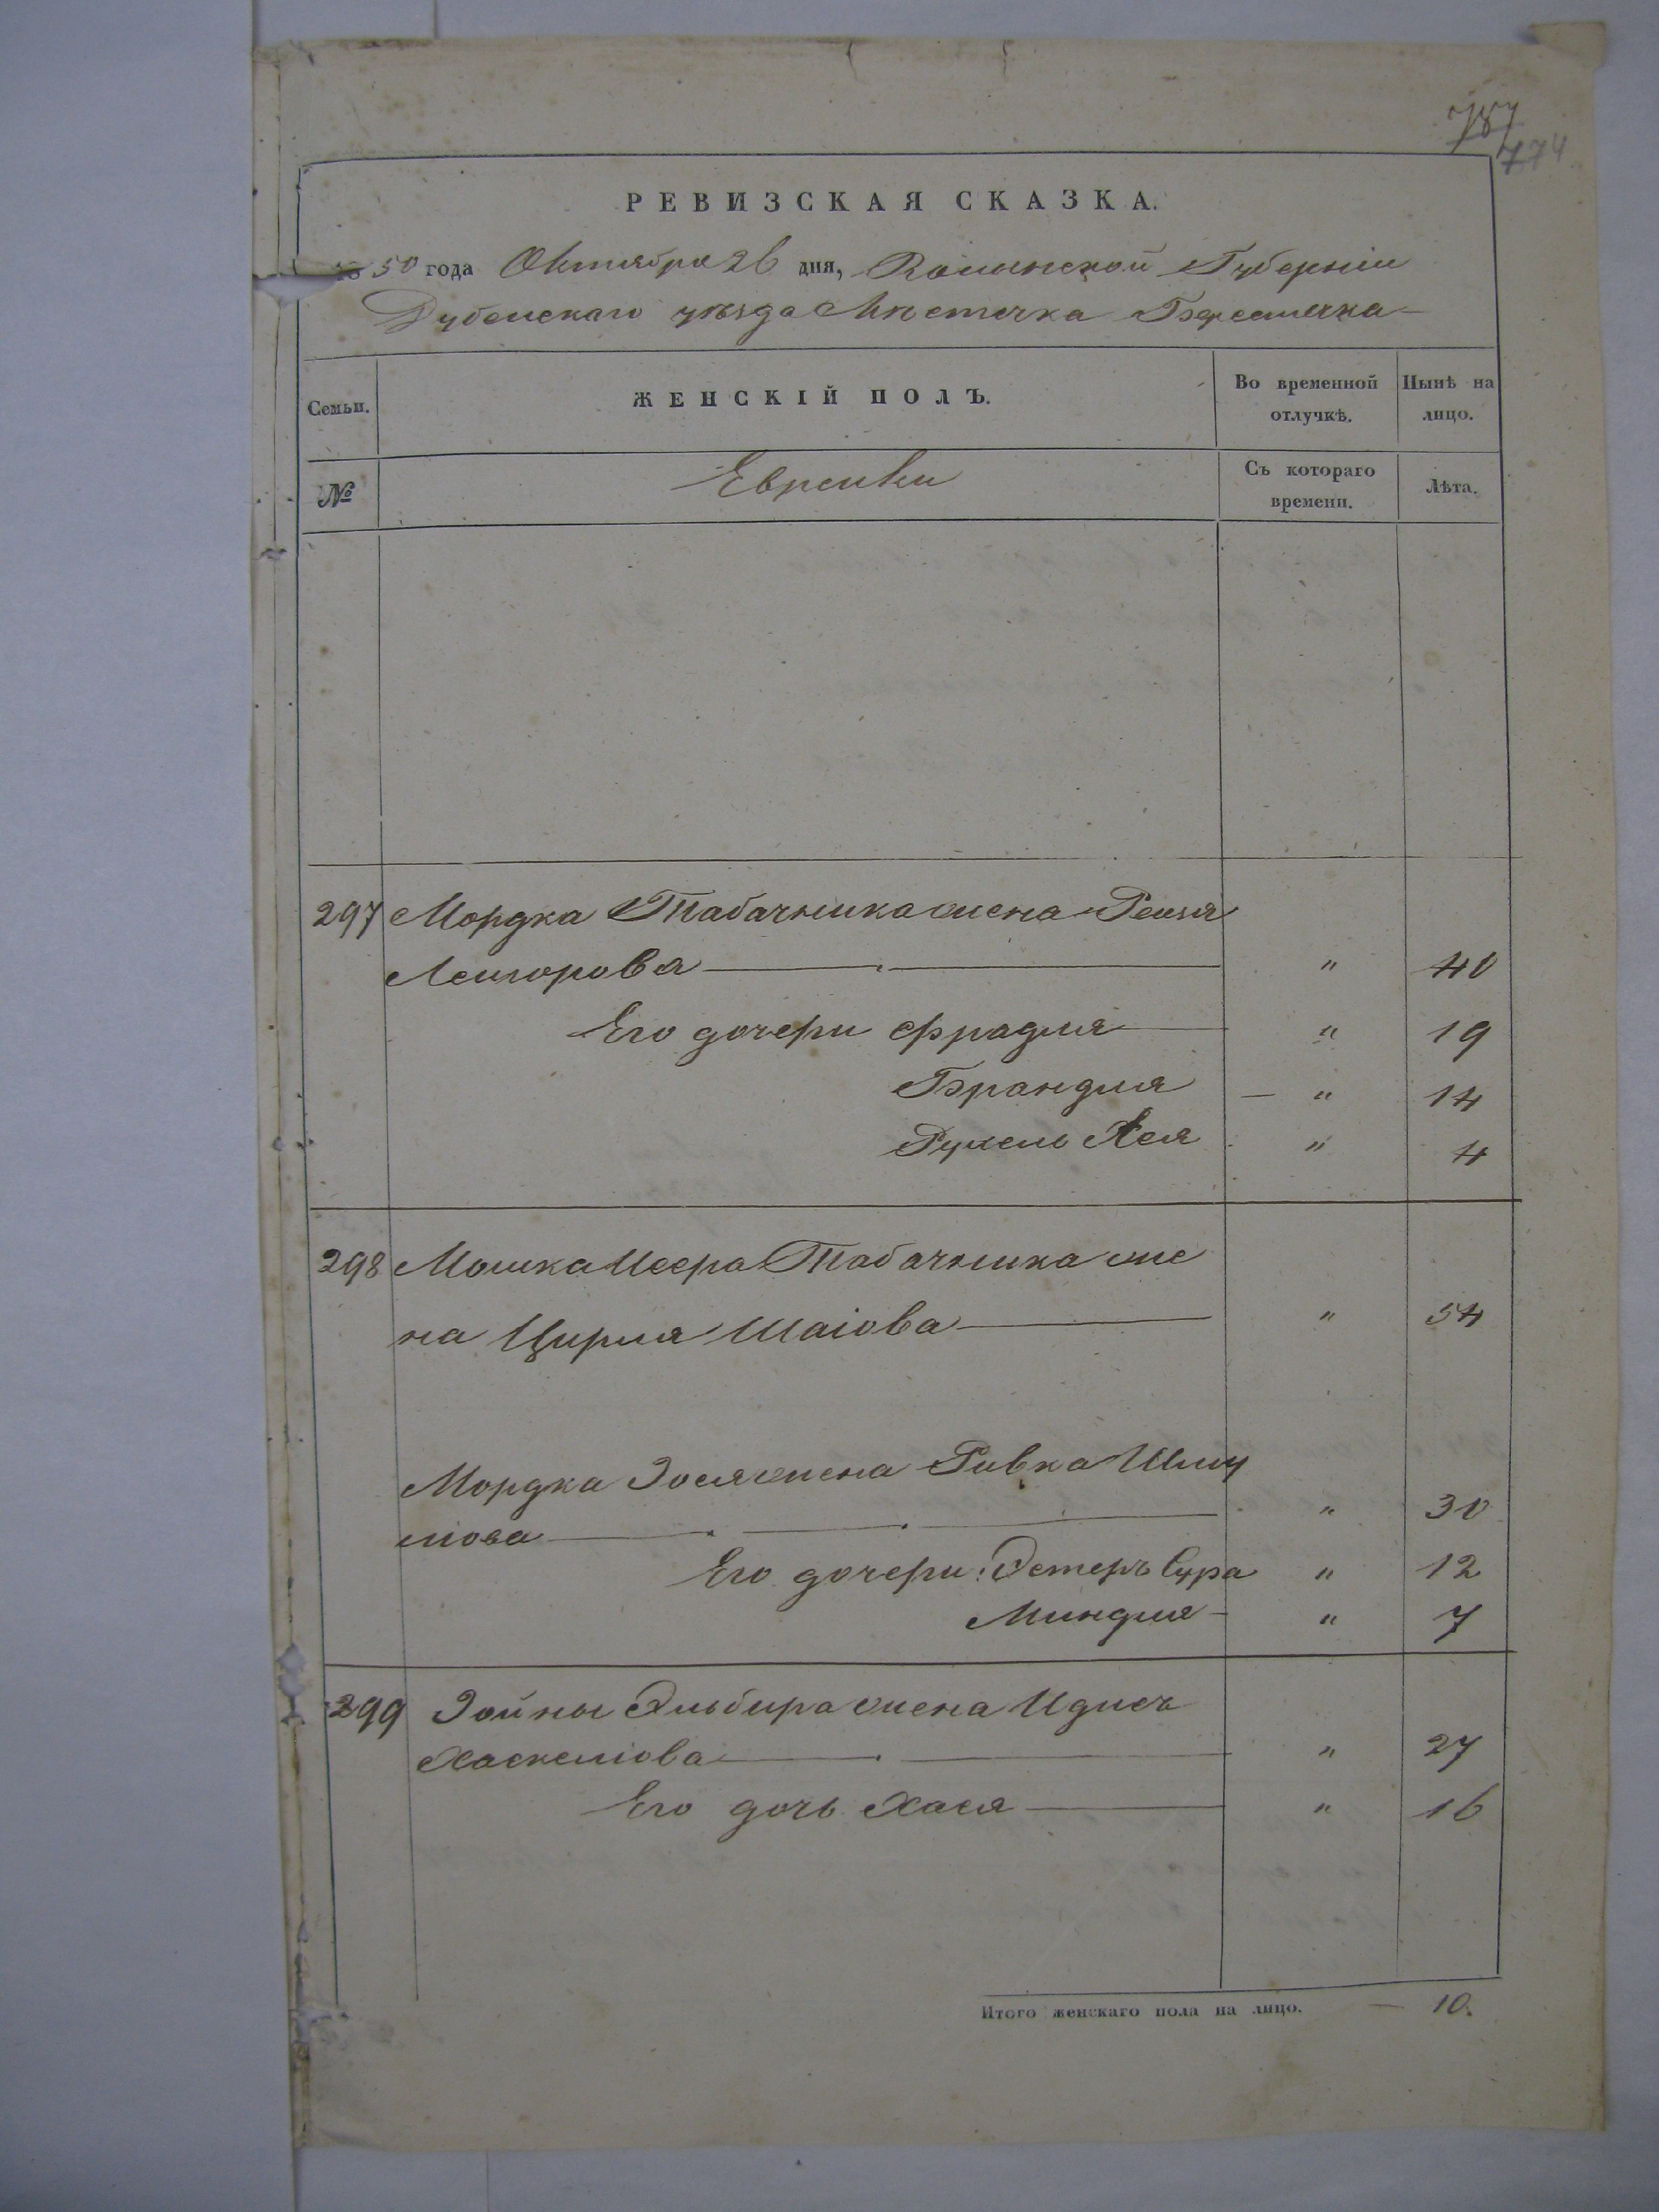 787
774
РЕВИЗСКАЯ СКАЗКА.
1850 года Октября 26 дня, Волынской Губерніи
Дубенскаго уѣзда Мѣстечка Берестечка
Семьи.
ЖЕНСКІЙ ПОЛЪ.
Во временной отлучкѣ.
Нынѣ на лицо.
№
Еврейки
Съ котораго времени.
Лѣта.
297 Мордка Табачника жена Рейзя
Лейзорова " 40
Его дочери Фрадля " 19
Брандля " 14
Рухель Лея " 4
298 Мошка Меера Табачника же
на Цирля Шаіова " 54
Мордка Зося жена Ривка Шму
лiова " 30
Его дочери: Эстеръ Сура " 12
Миндля " 7
299 Зойны Эльбира жена Идись
Хаскеліова " 27
Его дочь Хася " 16
Итого женскаго пола на лицо. — 10.